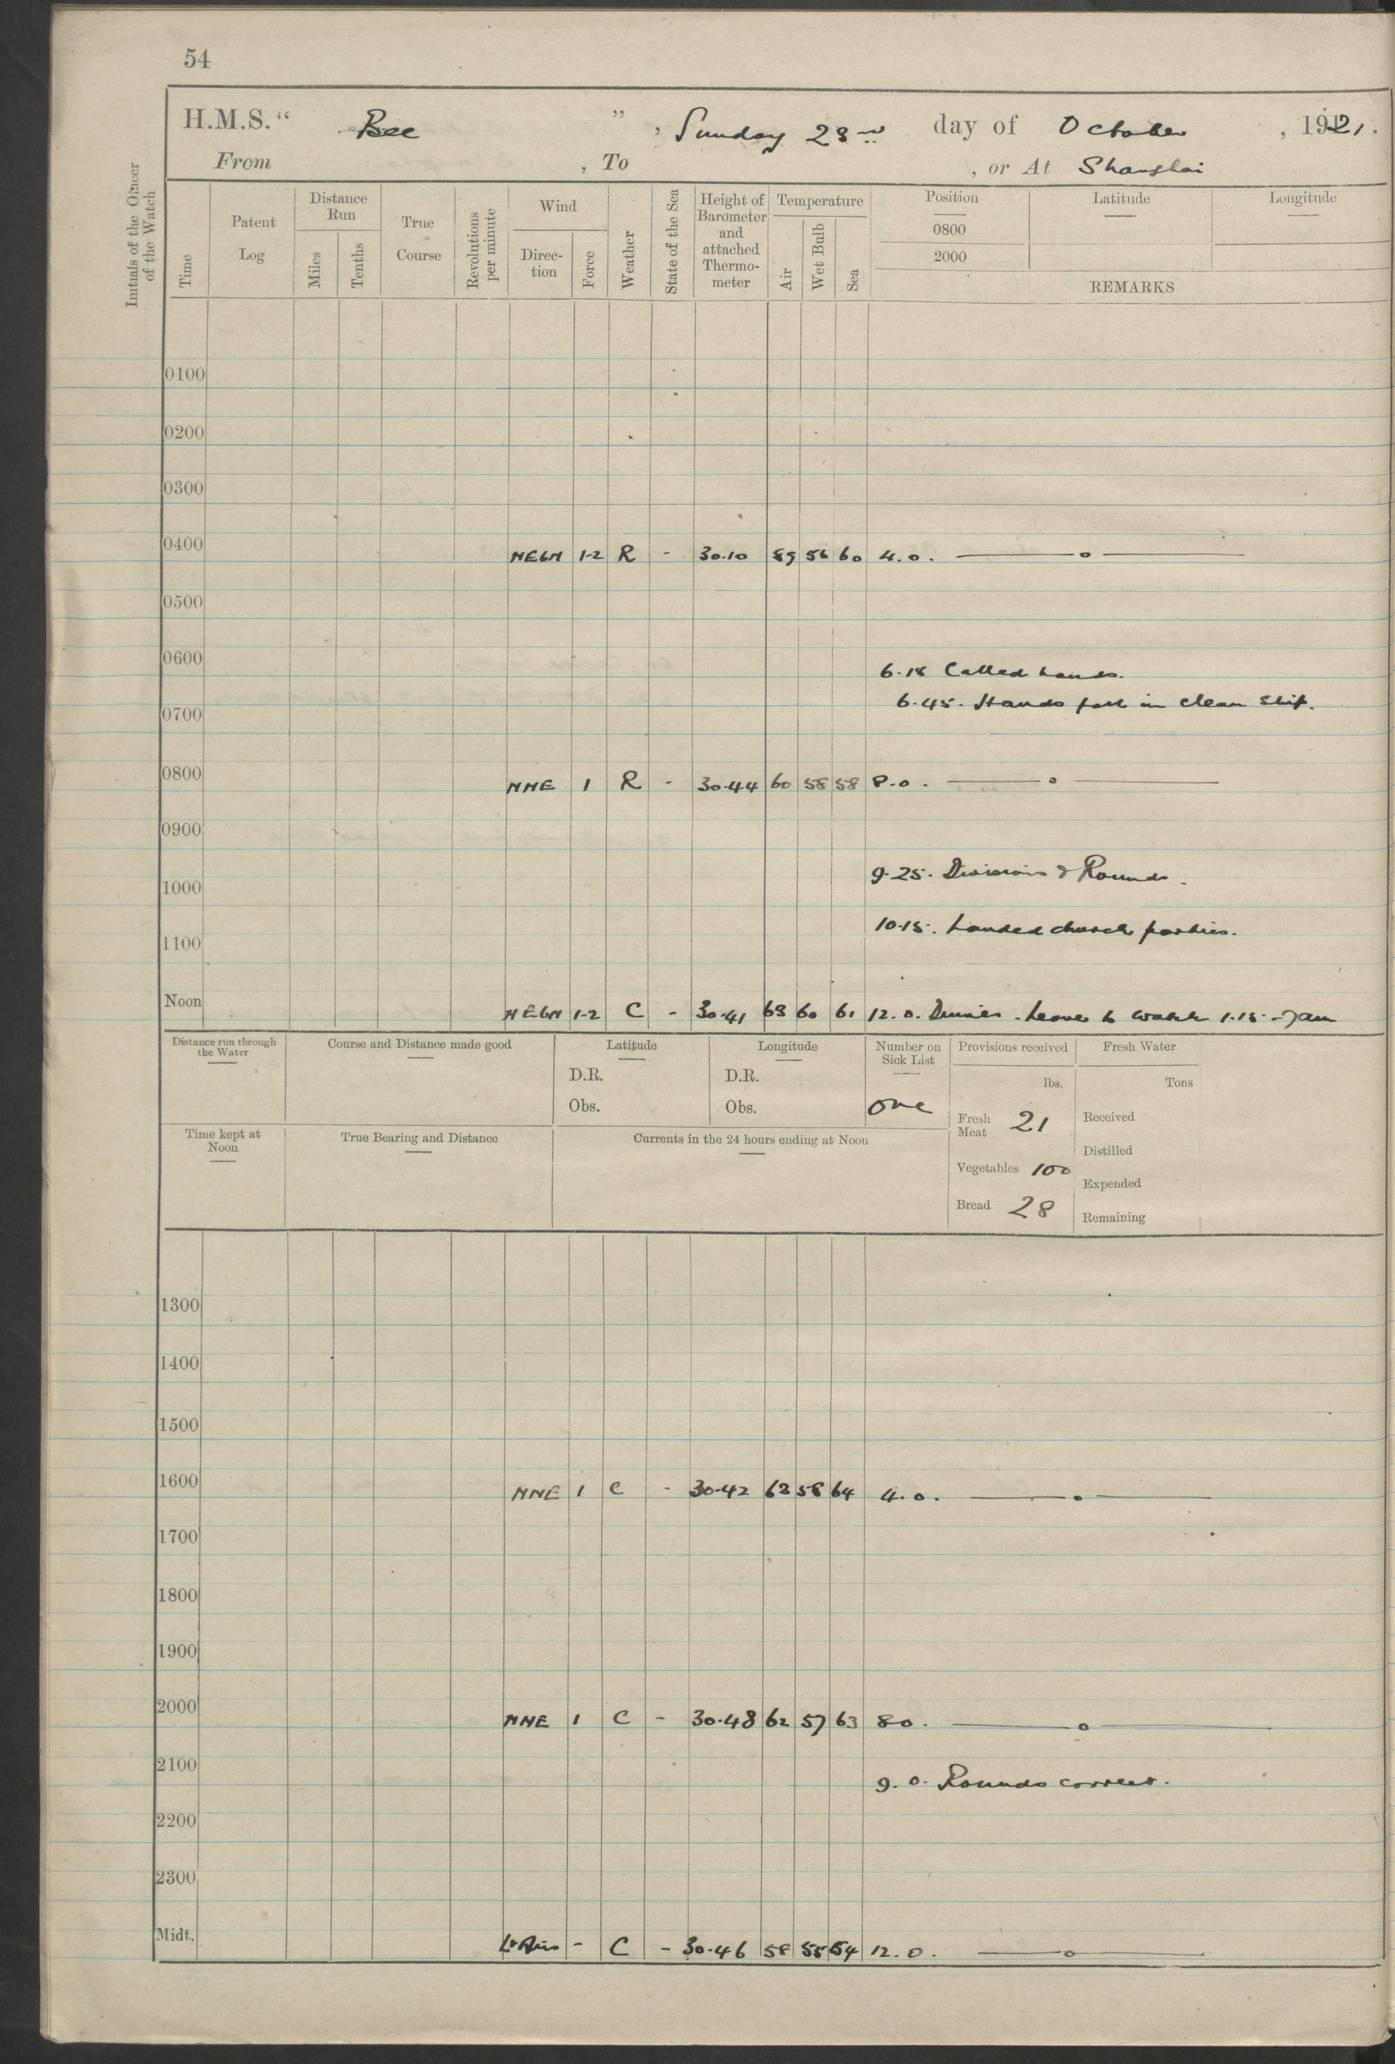 54
H.M.S. “ Bee ” , Sunday 23rd day of October , 1921.
From , To , or At Shanghai
Initials of the Officer of the Watch
Time
Patent Log
Distance Run
Miles
Tenths
True Course
Revolutions per minute
Wind
Direc-tion
Force
Weather
State of the Sea
Height of Barometer and attached Thermo-meter
Temperature
Air
Wet Bulb
Sea
Position
0800
2000
Latitude
Longitude
REMARKS
0100
0200
0300
0400 NEbN 1-2 R - 30.10 59 56 60 4.0. —o—
0500
0600
6.15 Called hands.
6.45. Hands fall in clean ship.
0700
0800 NNE 1 R - 30.44 60 58 58 8.0. —o—
0900
9.25. Divisions & Rounds.
1000
10.15. Landed church parties.
1100
Noon NEbN 1-2 C - 30.41 63 60 61 12.0. Dinner. Leave to watch 1.15 - 7am
Distance run through the Water
Course and Distance made good
Latitude
D.R.
Obs.
Longitude
D.R.
Obs.
Number on Sick List
one
Provisions received
lbs.
Fresh Meat 21
Vegetables 100
Bread 28
Fresh Water
Tons
Received
Distilled
Expended
Remaining
Time kept at Noon
True Bearing and Distance
Currents in the 24 hours ending at Noon
1300
1400
1500
1600 NNE 1 C - 30.42 63 58 64 4.0. —o—
1700
1800
1900
2000 NNE 1 C - 30.48 62 57 63 8.0. —o—
2100
9.0. Rounds correct.
2200
2300
Midt. Lt Airs - C - 30.46 58 55 54 12.0. —o—